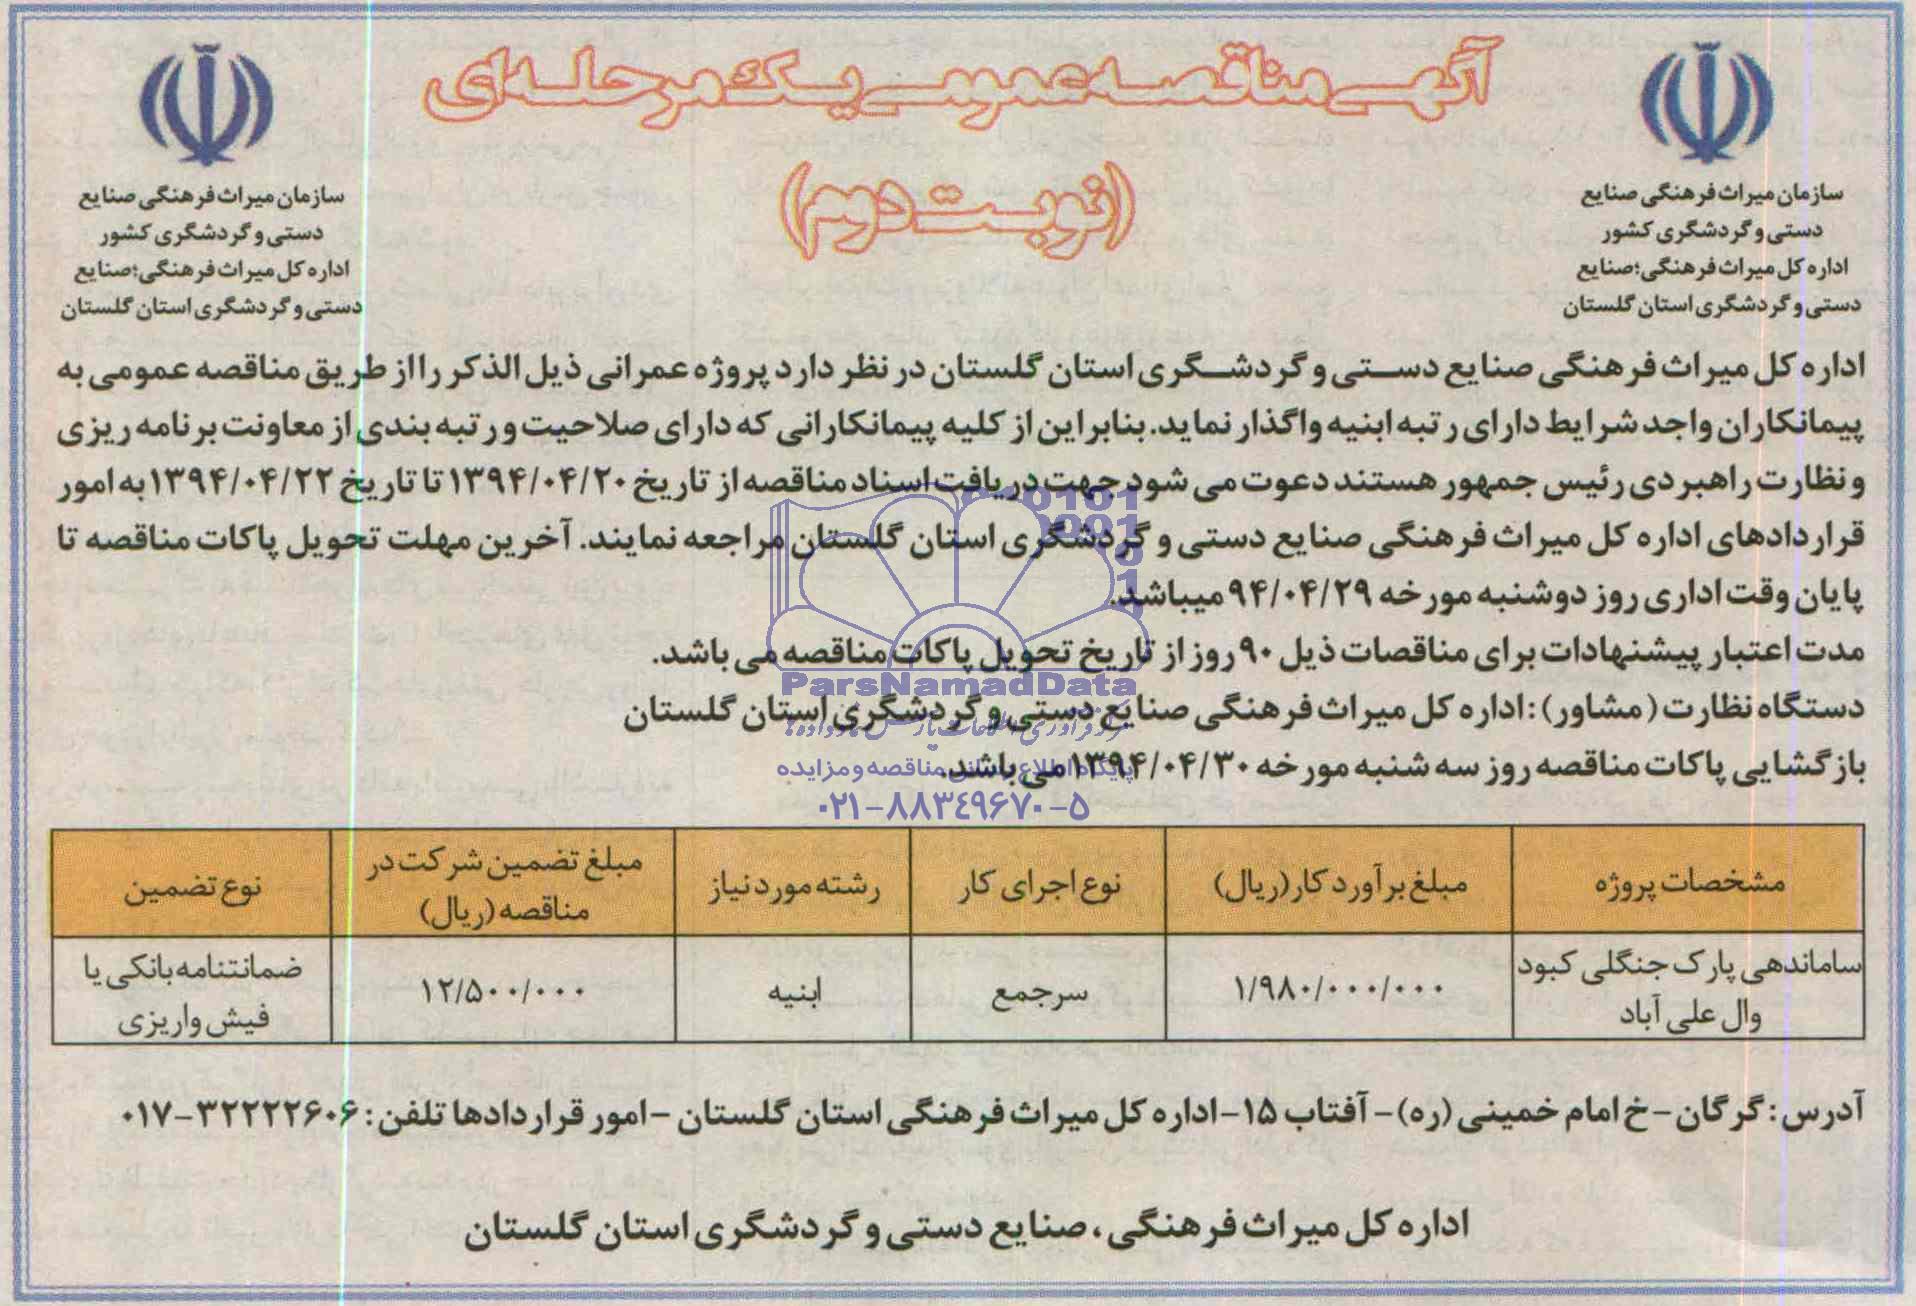 آگهی مناقصه عمومی یک مرحله‌ای
(نوبت دوم)
سازمان میراث فرهنگی صنایع
دستی و گردشگری کشور
اداره کل میراث فرهنگی؛صنایع
دستی و گردشگری استان گلستان
سازمان میراث فرهنگی صنایع
دستی و گردشگری کشور
اداره کل میراث فرهنگی؛صنایع
دستی و گردشگری استان گلستان
اداره کل میراث فرهنگی صنایع دستی و گردشگری استان گلستان در نظر دارد پروژه عمرانی ذیل الذکر را از طریق مناقصه عمومی به
پیمانکاران واجد شرایط دارای رتبه ابنیه واگذار نماید. بنابراین از کلیه پیمانکارانی که دارای صلاحیت و رتبه بندی از معاونت برنامه ریزی
و نظارت راهبردی رئیس جمهور هستند دعوت می شود جهت دریافت اسناد مناقصه از تاریخ ۱۳۹۴/۰۴/۲۰ تا تاریخ ۱۳۹۴/۰۴/۲۲ به امور
قراردادهای اداره کل میراث فرهنگی صنایع دستی و گردشگری استان گلستان مراجعه نمایند. آخرین مهلت تحویل پاکات مناقصه تا
پایان وقت اداری روز دوشنبه مورخه ۹۴/۰۴/۲۹ میباشد.
مدت اعتبار پیشنهادات برای مناقصات ذیل ۹۰ روز از تاریخ تحویل پاکات مناقصه می باشد.
دستگاه نظارت (مشاور): اداره کل میراث فرهنگی صنایع دستی و گردشگری استان گلستان
بازگشایی پاکات مناقصه روز سه شنبه مورخه ۱۳۹۴/۰۴/۳۰ می باشد.
ParsNamadData
مرکز فرآوری اطلاعات پارس نماد داده ها
پایگاه اطلاع رسانی مناقصه و مزایده
۰۲۱-۸۸۳۴۹۶۷۰-۵
مشخصات پروژه
مبلغ برآورد کار (ریال)
نوع اجرای کار
رشته مورد نیاز
مبلغ تضمین شرکت در
مناقصه (ریال)
نوع تضمین
ساماندهی پارک جنگلی کبود
وال علی آباد
۱/۹۸۰/۰۰۰/۰۰۰
سرجمع
ابنیه
۱۲/۵۰۰/۰۰۰
ضمانتنامه بانکی یا
فیش واریزی
آدرس: گرگان- خ امام خمینی (ره)- آفتاب ۱۵- اداره کل میراث فرهنگی استان گلستان - امور قراردادها تلفن: ۳۲۲۲۲۶۰۶-۰۱۷
اداره کل میراث فرهنگی، صنایع دستی و گردشگری استان گلستان